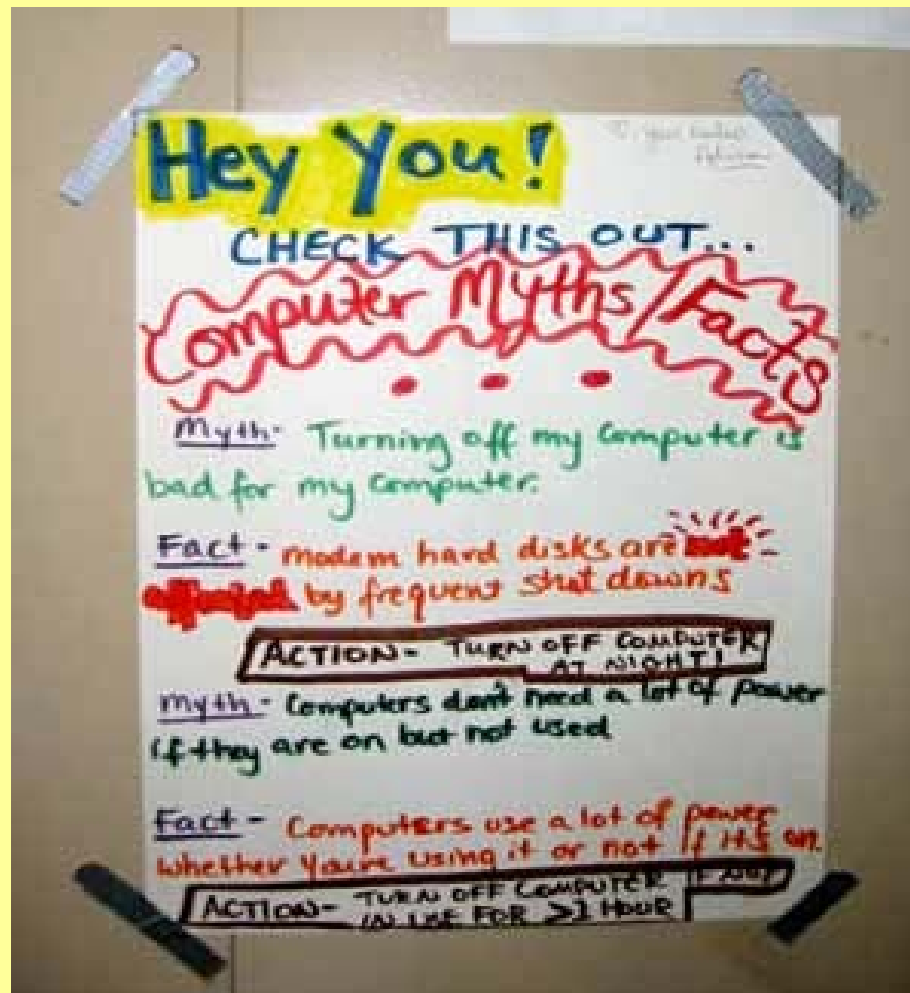 Hey You!
♡, your
CHECK THIS OUT...
Computer Myths/Facts
Myth- Turning off my computer is
bad for my computer.
Fact- modern hard disks are not
affected by frequent shut downs
ACTION- TURN OFF COMPUTER
AT NIGHT!
Myth- Computers don't need a lot of power
if they are on but not used
Fact- Computers use a lot of power
whether you're using it or not if it's on.
ACTION- TURN OFF COMPUTER IF NOT
IN USE FOR >1 HOUR